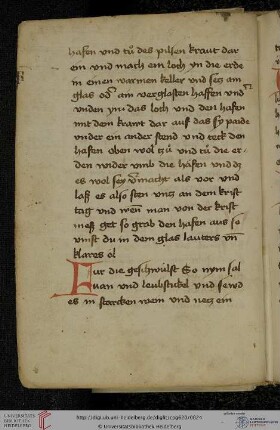 hafen vnd tů des pilsen kraut dar
ein vnd mach ein loch yn die erde
in einen warmen keller vnd secz am
glas od' am verglasten haffen vnd
vnden ynn das loch vnd den hafen
mit dem krawt dar auf das sy paide
vnder ein ander stend vnd deck den
hafen oben wol zů vnd tů die er
den wider vmb die hafen vnd dz
es wol sey v'macht als vor vnd
laß es also sten vncz an dem krist
tag vnd wen man von der krist
meß get so grab den hafen aus so
vinst du in dem glas lauters vn
klares ol
Fur die geschwulst So nym sal
van vnd leubstickel vnd sewd
es in starcken wein vnd necz ein
http://digi.ub.uni-heidelberg.de/diglit/
© Universitätsbibliothek Heidelberg
UNIVERSITÄTS-
BIBLIOTHEK
HEIDELBERG